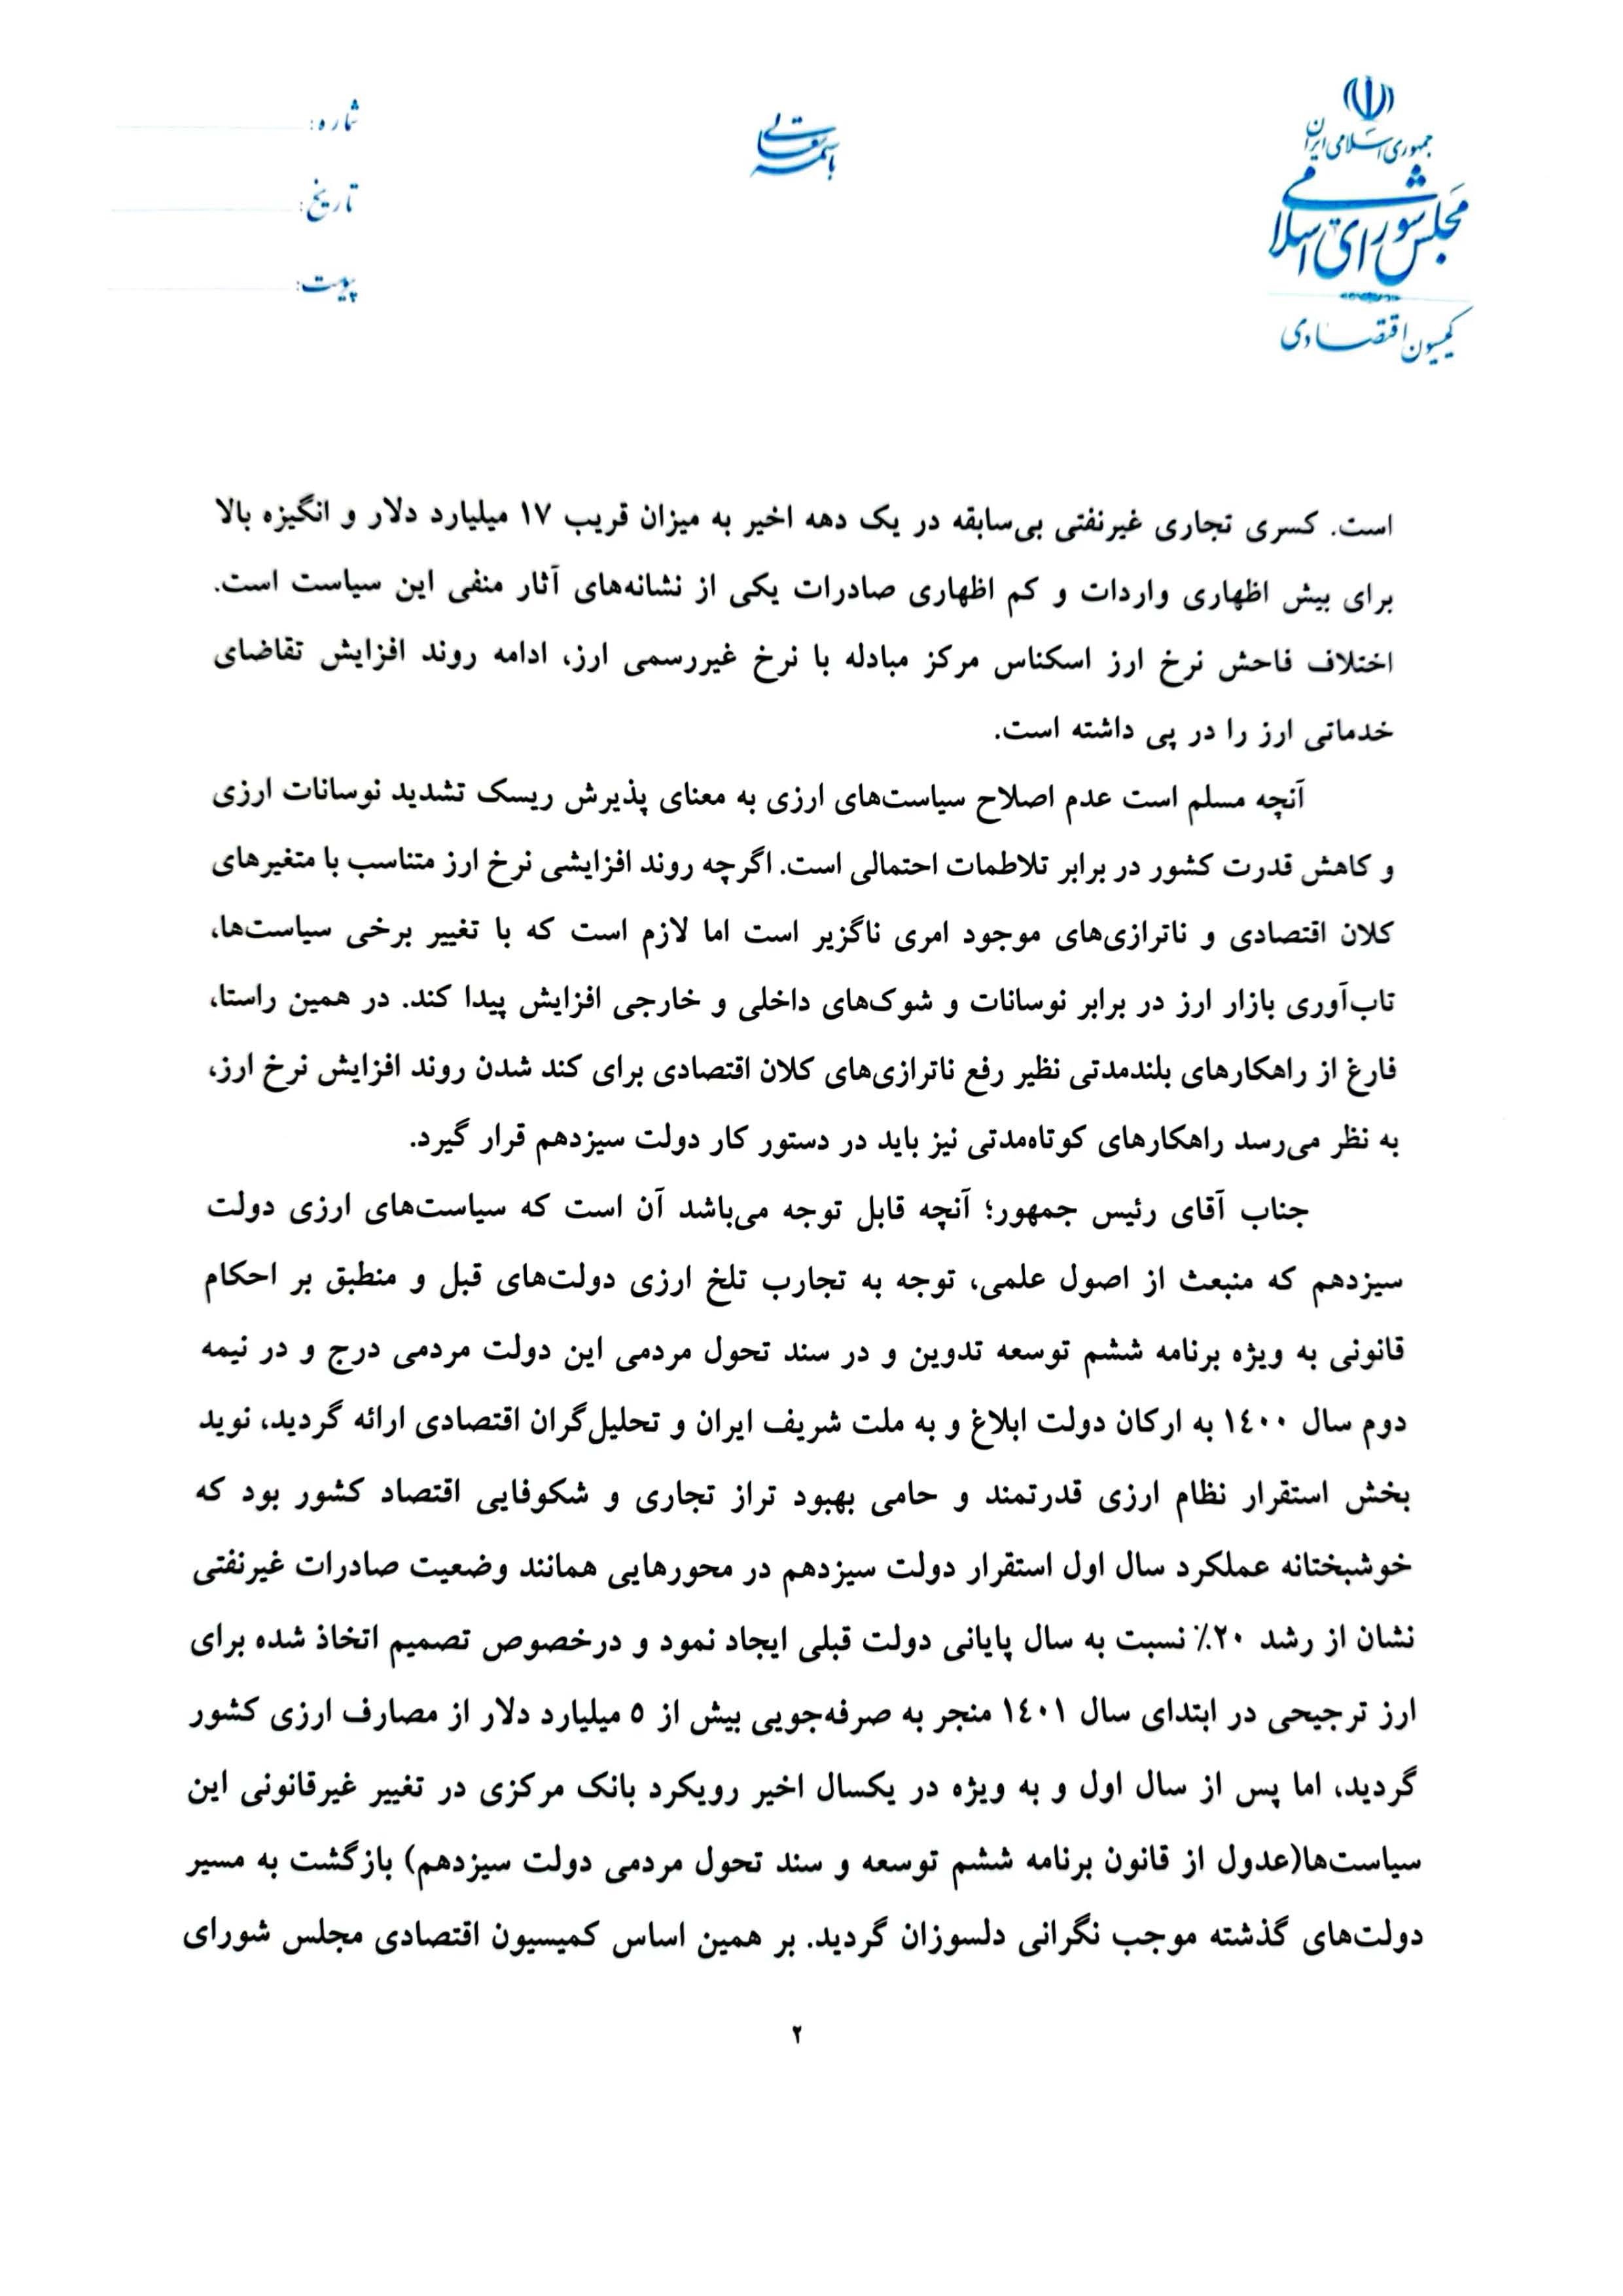 جمهوری اسلامی ایران
مجلس شورای اسلامی
کمیسیون اقتصادی
باسمه تعالی
شماره:
تاریخ:
پیوست:
است. کسری تجاری غیرنفتی بی‌سابقه در یک دهه اخیر به میزان قریب ۱۷ میلیارد دلار و انگیزه بالا
برای بیش اظهاری واردات و کم اظهاری صادرات یکی از نشانه‌های آثار منفی این سیاست است.
اختلاف فاحش نرخ ارز اسکناس مرکز مبادله با نرخ غیررسمی ارز، ادامه روند افزایش تقاضای
خدماتی ارز را در پی داشته است.
آنچه مسلم است عدم اصلاح سیاست‌های ارزی به معنای پذیرش ریسک تشدید نوسانات ارزی
و کاهش قدرت کشور در برابر تلاطمات احتمالی است. اگرچه روند افزایشی نرخ ارز متناسب با متغیرهای
کلان اقتصادی و ناترازی‌های موجود امری ناگزیر است اما لازم است که با تغییر برخی سیاست‌ها،
تاب‌آوری بازار ارز در برابر نوسانات و شوک‌های داخلی و خارجی افزایش پیدا کند. در همین راستا،
فارغ از راهکارهای بلندمدتی نظیر رفع ناترازی‌های کلان اقتصادی برای کند شدن روند افزایش نرخ ارز،
به نظر می‌رسد راهکارهای کوتاه‌مدتی نیز باید در دستور کار دولت سیزدهم قرار گیرد.
جناب آقای رئیس جمهور؛ آنچه قابل توجه می‌باشد آن است که سیاست‌های ارزی دولت
سیزدهم که منبعث از اصول علمی، توجه به تجارب تلخ ارزی دولت‌های قبل و منطبق بر احکام
قانونی به ویژه برنامه ششم توسعه تدوین و در سند تحول مردمی این دولت مردمی درج و در نیمه
دوم سال ۱٤۰۰ به ارکان دولت ابلاغ و به ملت شریف ایران و تحلیل‌گران اقتصادی ارائه گردید، نوید
بخش استقرار نظام ارزی قدرتمند و حامی بهبود تراز تجاری و شکوفایی اقتصاد کشور بود که
خوشبختانه عملکرد سال اول استقرار دولت سیزدهم در محورهایی همانند وضعیت صادرات غیرنفتی
نشان از رشد ۲۰٪ نسبت به سال پایانی دولت قبلی ایجاد نمود و درخصوص تصمیم اتخاذ شده برای
ارز ترجیحی در ابتدای سال ۱٤۰۱ منجر به صرفه‌جویی بیش از ٥ میلیارد دلار از مصارف ارزی کشور
گردید، اما پس از سال اول و به ویژه در یکسال اخیر رویکرد بانک مرکزی در تغییر غیرقانونی این
سیاست‌ها(عدول از قانون برنامه ششم توسعه و سند تحول مردمی دولت سیزدهم) بازگشت به مسیر
دولت‌های گذشته موجب نگرانی دلسوزان گردید. بر همین اساس کمیسیون اقتصادی مجلس شورای
۲